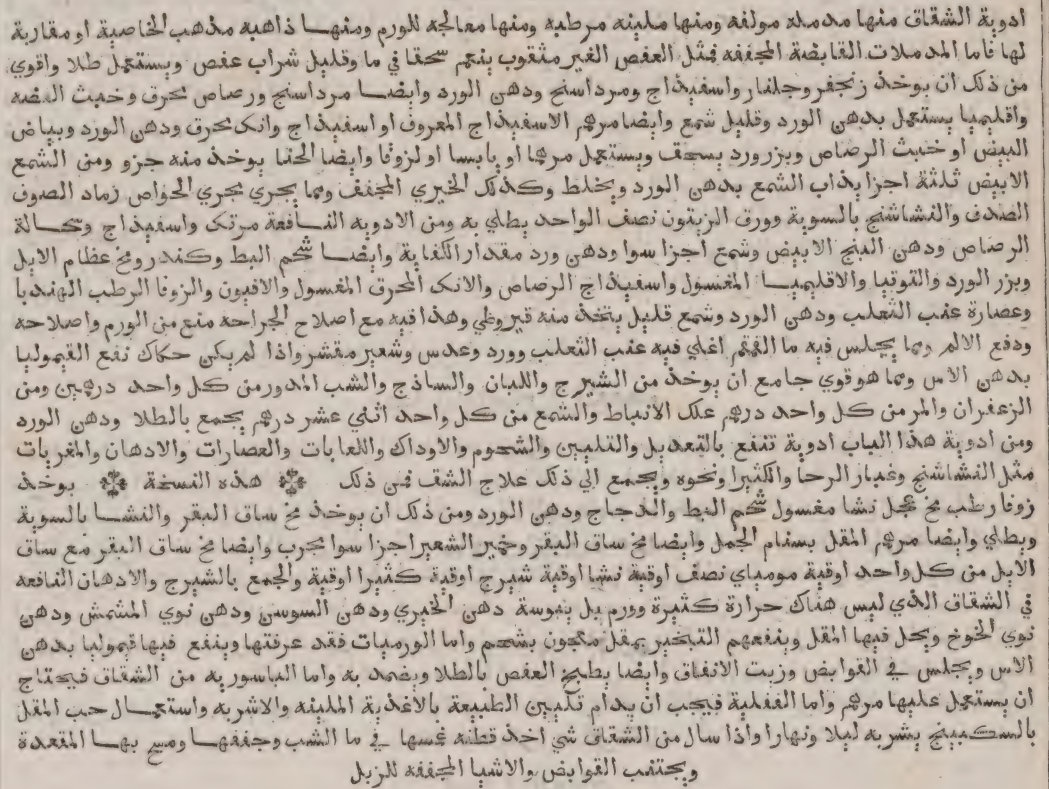 ادوية الشقاق منها مدمله مولفه ومنها ملينه مرطبه ومنها معالجه للورم ومنها ذاهبه مذهب الخاصية او مقاربة
لها فاما المدملات القابضة المجففه فمثل العفص الغير مثقوب ينعم سحقا في ما وقليل شراب عفص ويستعمل طلا واقوي
من ذلك ان يوخذ زنجفر وجلنار واسفيذاج ومرداسنج ودهن الورد وايضا مرداسنج ورصاص محرق وخبث الفضه
واقليميا يستعمل بدهن الورد وقليل شمع وايضا مرهم الاسفيذاج المعروف او اسفيذاج وانك محرق ودهن الورد وبياض
البيض او خبث الرصاص وبزر ورد يسحق ويستعمل مرهما او يابسا او لزوقا وايضا الحنا يوخذ منه جزو ومن الشمع
الابيض ثلثة اجزا يذاب الشمع بدهن الورد ويخلط وكذلك الخيري المجفف وما يجري مجري الخواص زماد الصوف
الصدف والنشاشنج بالسوية وورق الزيتون نصف الواحد يطلي به ومن الادويه النافعة مرتك واسفيذاج وحكالة
الرصاص ودهن البنج الابيض وشمع اجزا سوا ودهن ورد مقدار الكفاية وايضا شحم البط وكندر ومخ عظام الايل
وبزر الورد والتوتيا والاقليميا المغسول واسفيذاج الرصاص والانك المحرق المغسول والافيون والزوفا الرطب الهندبا
وعصارة عنب الثعلب ودهن الورد وشمع قليل يتخذ منه قيروطي وهذا فيه مع اصلاح الجراحه منع من الورم واصلاحه
ودفع الالم وما يجلس فيه ما القمقم اغلي فيه عنب الثعلب وورد وعدس وشعير مقشر واذا لم يكن حكاك نفع القيموليا
بدهن الاس وما هو قوي جامع ان يوخذ من الشيرج واللبان والساذج والشب المدور من كل واحد درهمين ومن
الزعفران والمر من كل واحد درهم علك الانباط والشمع من كل واحد اثني عشر درهم يجمع بالطلا ودهن الورد
ومن ادوية هذا الباب ادوية تنفع بالتعديل والتليين والشحوم والاوداك واللعابات والعصارات والادهان والمغريات
مثل النشاشنج وغبار الرحا والكثيرا ونحوه ويجمع الي ذلك علاج الشق فمن ذلك هذه النسخة يوخذ
زوفا رطب مخ عجل نشا مغسول شحم البط والدجاج ودهن الورد ومن ذلك ان يوخذ مخ ساق البقر والنشا بالسوية
ويطلي وايضا مرهم المقل بسنام الجمل وايضا مخ ساق البقر وخمير الشعير اجزا سوا مجرب وايضا مخ ساق البقر مع ساق
الايل من كل واحد اوقية مومياي نصف اوقية نشا اوقية شيرج اوقية كثيرا اوقية والجمع بالشيرج والادهان النافعه
في الشقاق الذي ليس هناك حرارة كثيرة وورم بل يبوسة دهن الخيري ودهن السوسن ودهن نوي المشمش ودهن
نوي الخوخ ويحل فيها المقل وينفعهم التبخير بمقل معجون بشحم واما الورميات فقد عرفتها وينفع فيها قيموليا بدهن
الاس ويجلس في القوابض وزيت الانفاق وايضا يطبخ العفص بالطلا ويضمد به واما الباسوريه من الشقاق فيحتاج
ان يستعمل عليها مرهم واما الفلية فيجب ان يدام تليين الطبيعة بالاغذية الملينه والاشربه واستعمال حب المقل
بالسكبينج يشربه ليلا ونهارا واذا سال من الشقاق شي اخذ قطنه غمسها في ما الشب وجففها ومسح بها المقعدة
ويجتنب القوابض والاشيا المجففه للزبل